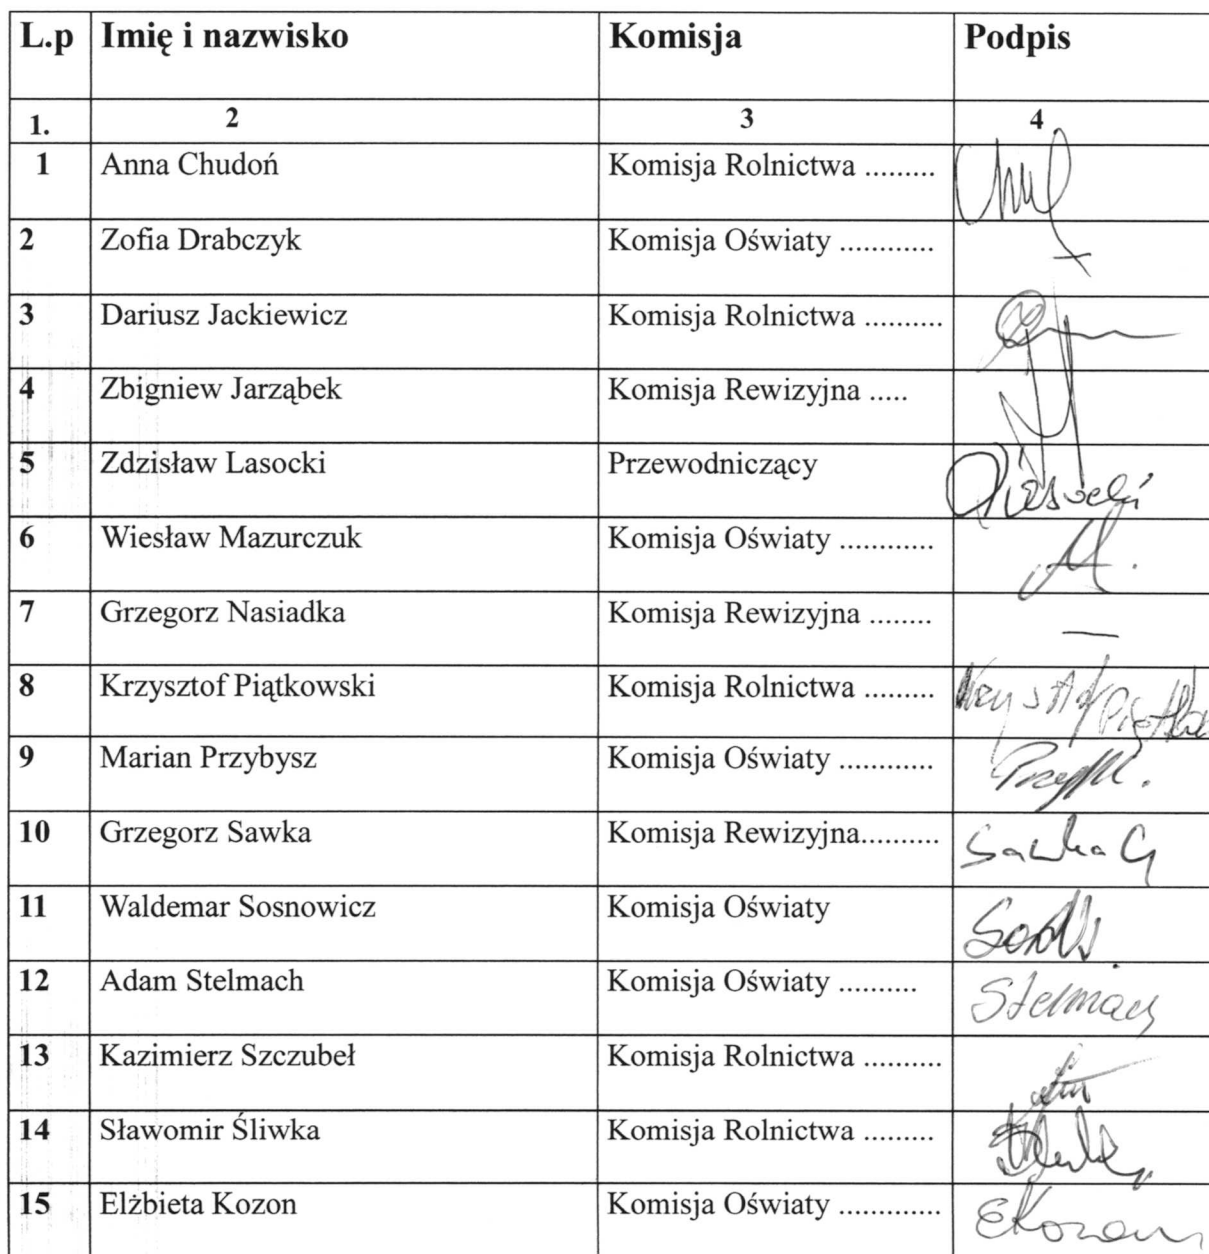 L.p Imię i nazwisko Komisja Podpis
1. 2 3 4
1 Anna Chudoń Komisja Rolnictwa .........
2 Zofia Drabczyk Komisja Oświaty ............
3 Dariusz Jackiewicz Komisja Rolnictwa ..........
4 Zbigniew Jarząbek Komisja Rewizyjna .....
5 Zdzisław Lasocki Przewodniczący
6 Wiesław Mazurczuk Komisja Oświaty ............
7 Grzegorz Nasiadka Komisja Rewizyjna ........ —
8 Krzysztof Piątkowski Komisja Rolnictwa .........
9 Marian Przybysz Komisja Oświaty ............
10 Grzegorz Sawka Komisja Rewizyjna.......... Sawka G
11 Waldemar Sosnowicz Komisja Oświaty
12 Adam Stelmach Komisja Oświaty .......... Stelmach
13 Kazimierz Szczubeł Komisja Rolnictwa ..........
14 Sławomir Śliwka Komisja Rolnictwa .........
15 Elżbieta Kozon Komisja Oświaty ............. EKozon